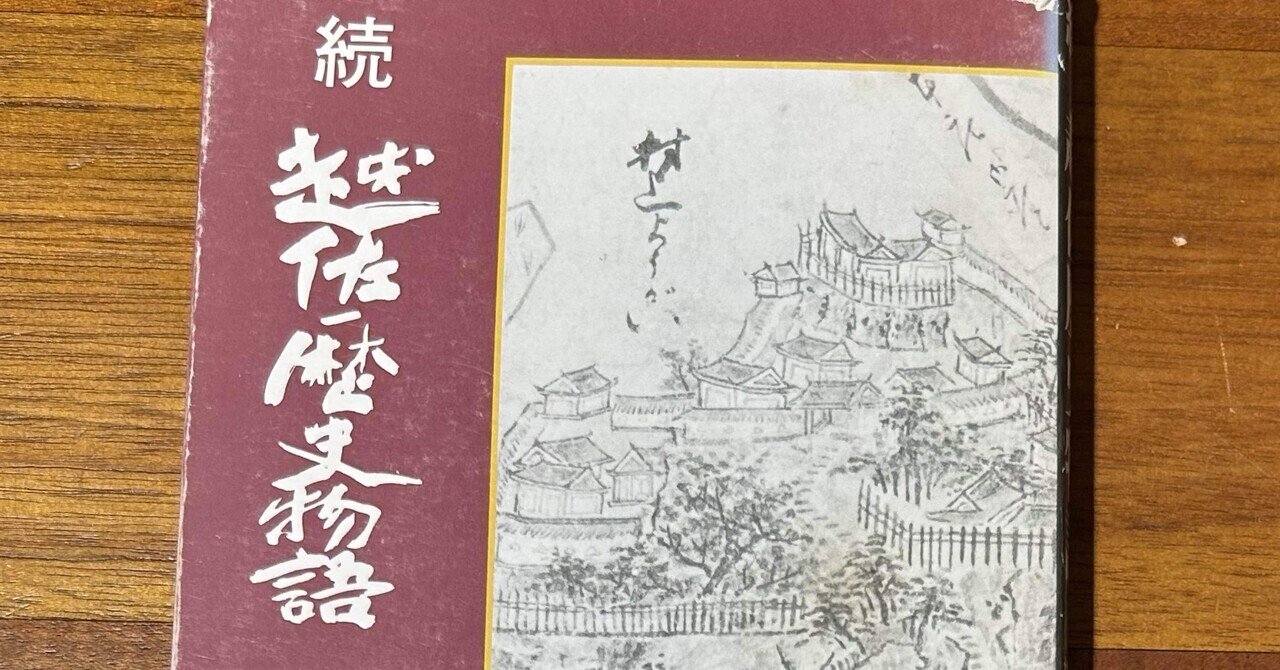 続
越佐歴史物語
村上ようがい